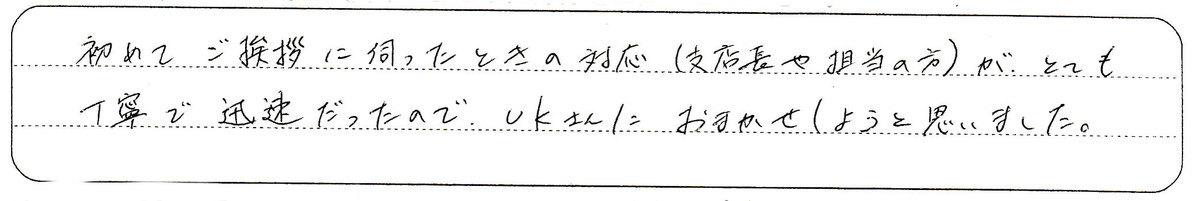 初めて ご挨拶に伺ったときの対応(支店長や担当の方)が、とても
丁寧で迅速だったので、UKさんにおまかせしようと思いました。